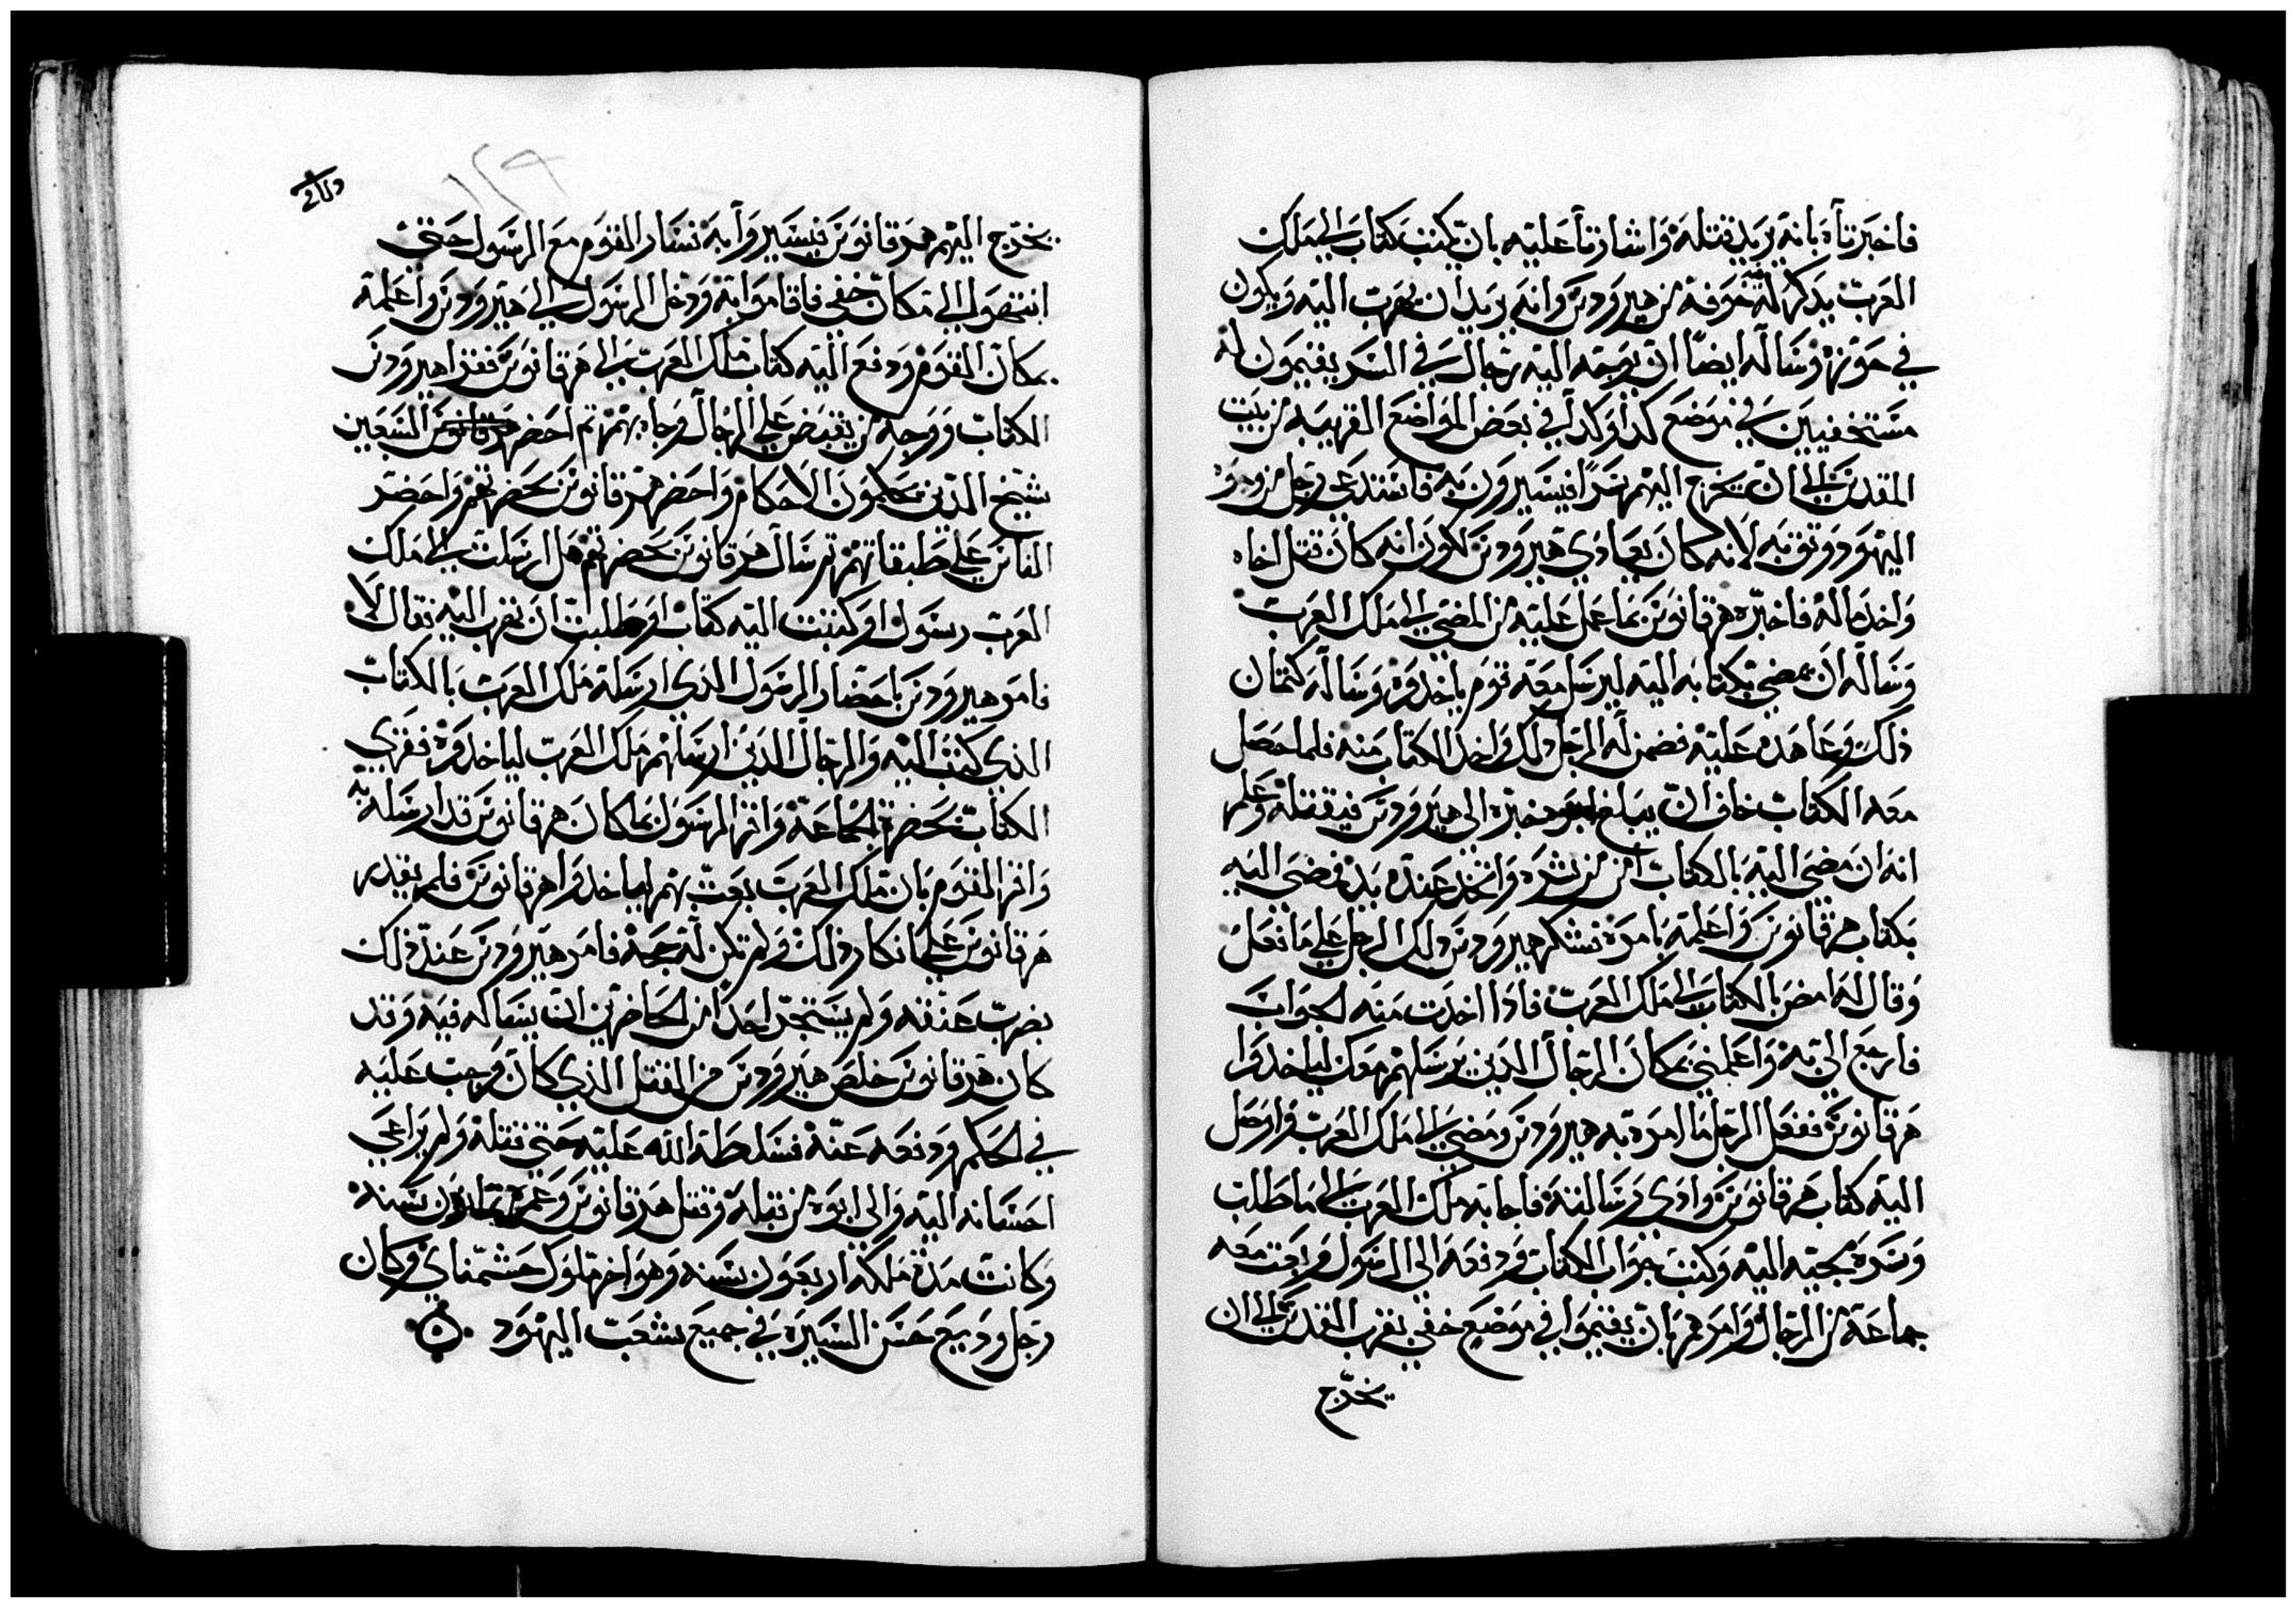 فاخبرتاه بانه يريد قتله واشارتا عليه بان يكتب كتاب الي ملك
العرب يذكر له خوفه من هيرودس وانه يريد ان يهرب اليه ويكون
في حوزته وساله ايضا ان يوجه اليه برجال في السر يقيمون له
مستخفيين في موضع كذا وكذا في بعض المواضع القريبه من بيت
المقدس الي ان يخرج اليهم سرا فيسيرون به فاستدعي رجل من وجوه
اليهود ووثق به لانه كان يعادي هيرودس لكون انه كان قتل اخاه
واخذ ماله فاخبره هرقانوس بما عمل عليه من المضي الي ملك العرب
وساله ان يمضي بكتابه اليه ليرسل معه قوم ياخذوه وساله كتمان
ذلك وعاهده عليه فضمن له الرجل ذلك واخذ الكتاب منه فلما حصل
معه الكتاب خاف ان يبلغ خبره الي هيرودس فيقتله وعلم
انه ان مضي اليه بالكتاب امن من شره واتخذ عنده يد فمضي اليه
بكتاب هرقانوس واعلمه بامره فشكر هيرودس ذلك الرجل علي ما فعل
وقال له امض بالكتاب الي ملك العرب فاذا اخذت منه الجواب
فارجع الي به واعلمني بمكان الرجال الذين يرسلهم معك لياخذوا
هرقانوس ففعل الرجل ما امره به هيرودس ومضي الي ملك العرب واوصل
اليه كتاب هرقانوس وادي رسالته فاجابه ملك العرب الي ما طلب
وسره مجيه اليه وكتب جواب الكتاب ودفعه الي الرسول وبعث معه
جماعة من الرجال وامرهم بان يقيموا في موضع خفي بقرب القدس الي ان
يخرج
يخرج اليهم هرقانوس فيسيروا به فسار القوم مع الرسول حتي
انتهوا الي مكان خفي فاقاموا به ودخل الرسول الي هيرودس واعلمه
بمكان القوم ودفع اليه كتاب ملك العرب الي هرقانوس فقرا هيرودس
الكتاب ووجه من يقبض علي الرجال وجا بهم ثم احضر السبعين
شيخ الذين يحكمون الاحكام واحضر هرقانوس بحضرتهم واحضر
الناس علي طبقاتهم ثم سال هرقانوس بحضرتهم هل ارسلت الي ملك
العرب رسول او كتبت اليه كتاب او طلبت ان تهرب اليه فقال لا
فامر هيرودس باحضار الرسول الذي ارسله ملك العرب بالكتاب
الذي كتب اليه والرجال الذين ارسلهم ملك العرب لياخذوه فقري
الكتاب بحضرة الجماعة واقر الرسول بما كان هرقانوس قد ارسله به
واقر القوم بان ملك العرب بعث بهم لياخذوا هرقانوس فلم يقدر
هرقانوس علي انكار ذلك ولم تكن له حجة فامر هيرودس عند ذلك
بضرب عنقه ولم يستجري احدا من الحاضرين ان يساله فيه وقد
كان هرقانوس خلص هيرودس من القتل الذي كان وجب عليه
في الحكم ودفعه عنه فسلطه الله عليه حتي قتله ولم يراعي
احسانه اليه والي ابوه من قبله وقتل هرقانوس وعمره ثمانون سنه
وكانت مدة ملكه اربعون سنه وهو اخر ملوك حشمناي وكان
رجل وديع حسن السيره في جميع شعب اليهود